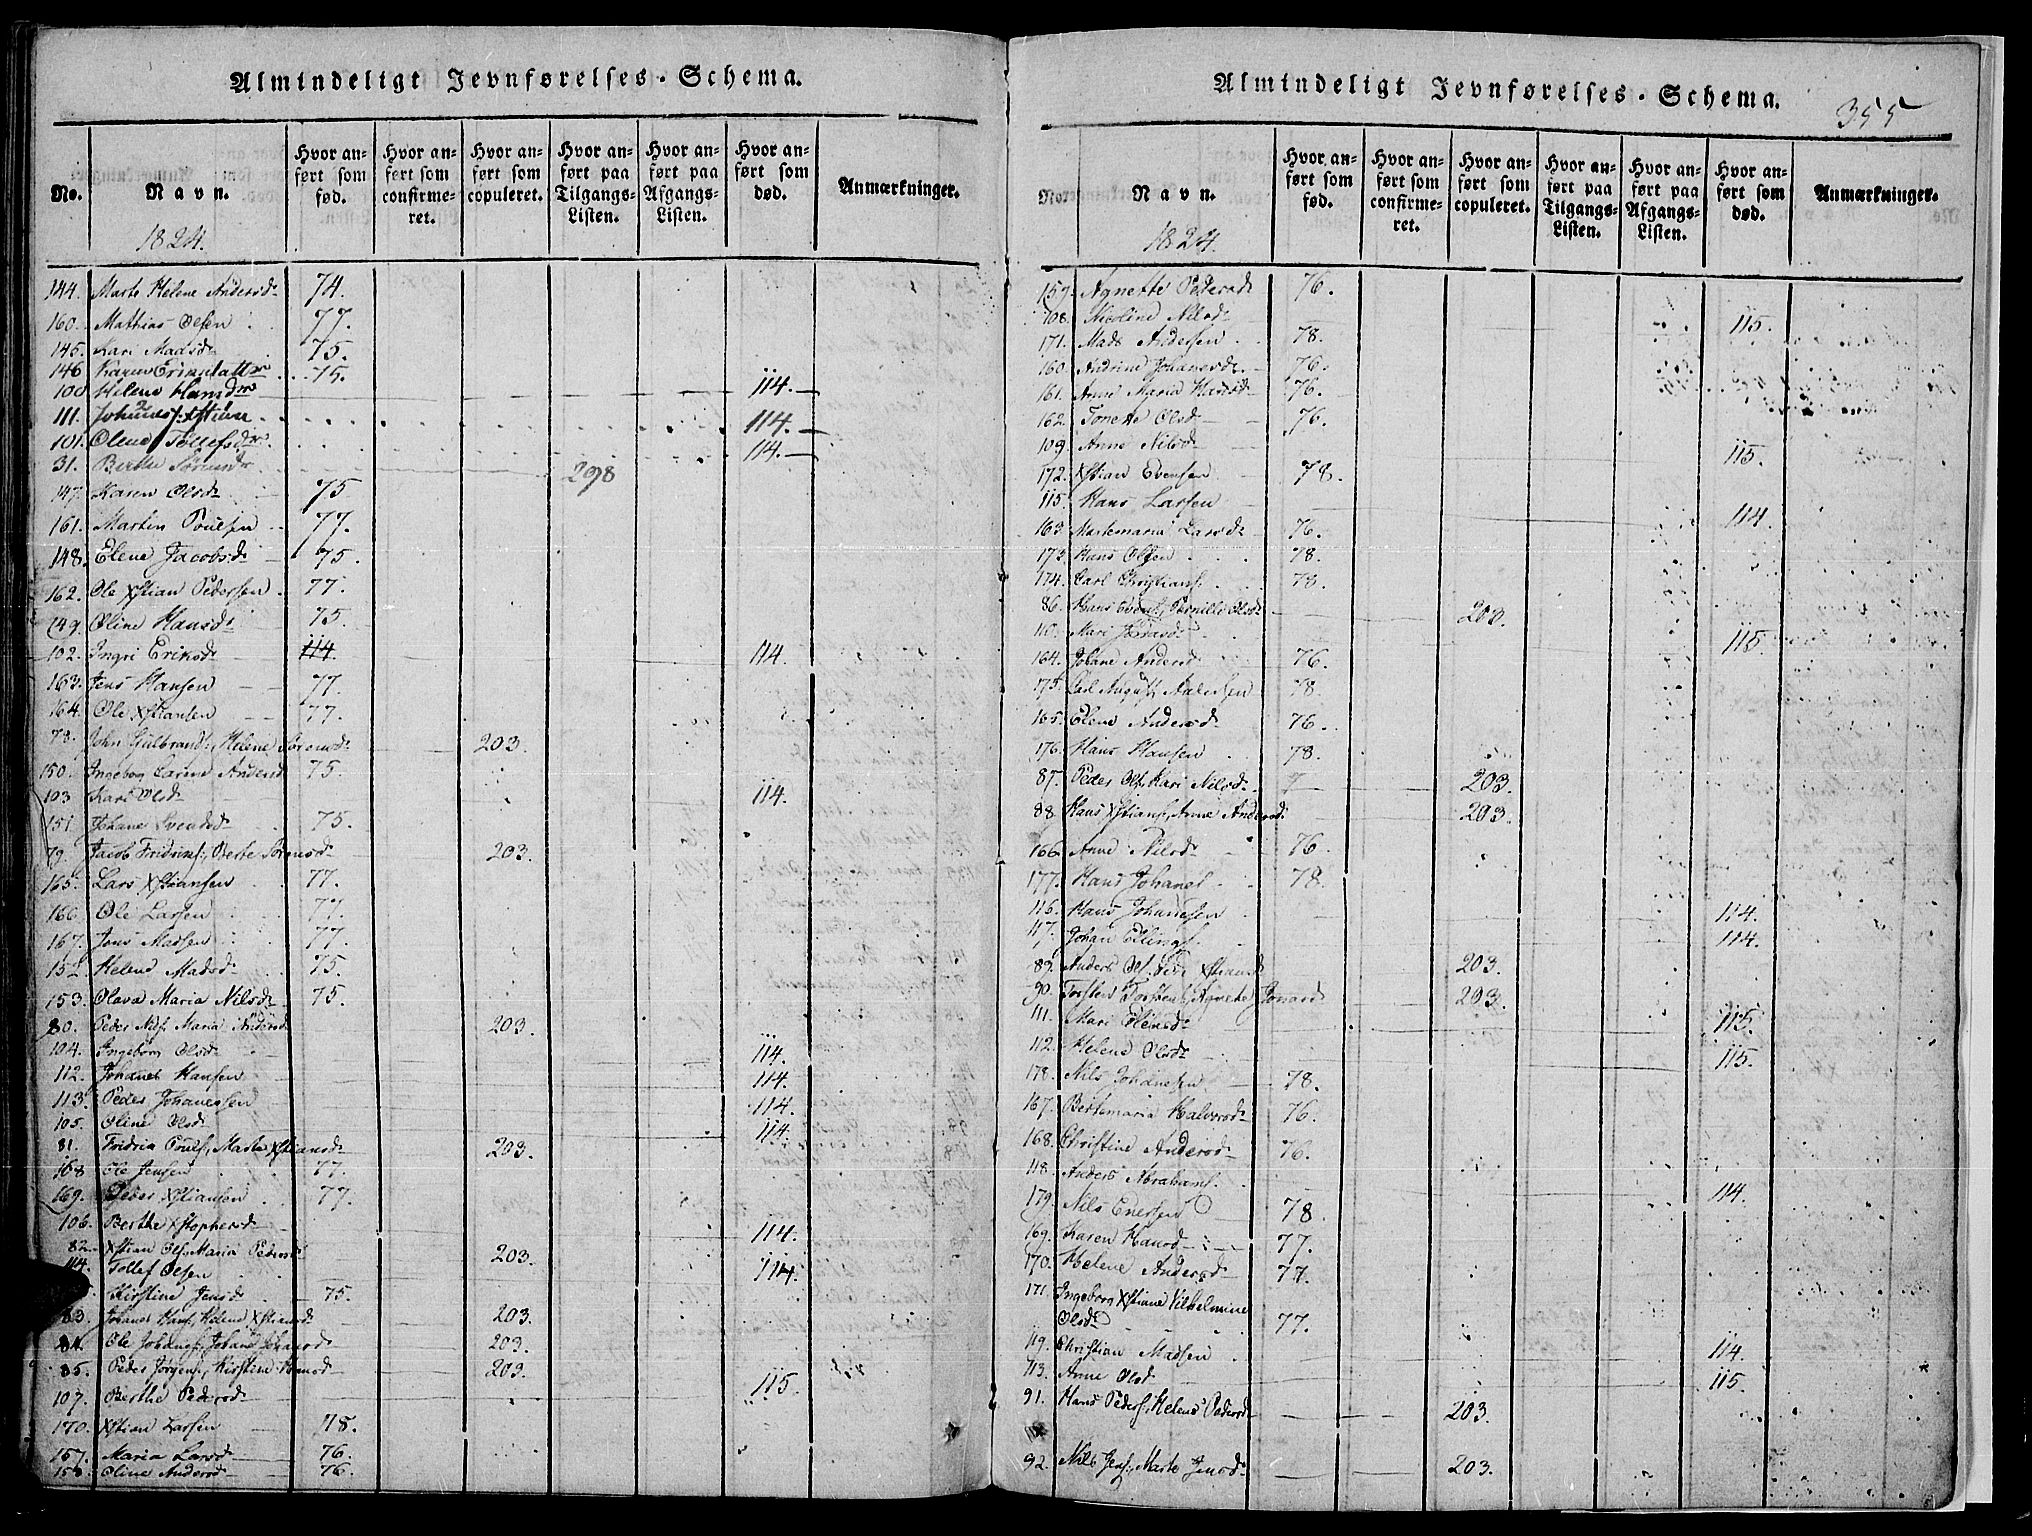 Almindeligt Jevnførelses-Schema.
No. Navn. Hvor anført som fød. Hvor anført som confirmeret. Hvor anført som copuleret. Hvor anført paa Tilgangs-Listen. Hvor anført paa Afgangs-Listen. Hvor anført som død. Anmærkninger.
1824.
144. Marte Helene Andersd 74.
160. Mathias Olsen 77.
145. Kari Madsd 75.
146 Karen 75.
100 Helene Hansdr 114.
111. 114.
101. Olene Tollefsdr 114.
31. Berthe Sørensdr 298
147. Karen Olsd 75
161. Martin Poulsen 77.
148. Elene Jacobsd 75.
162. Ole Xstian Pedersen 77.
149. Oline Hansd 75.
102. Ingri Eriksd 114 114.
163. Jens Hansen 77.
164. Ole Xstiansen 77.
78. John Gulbrands, Helene Sørensd 203.
150. Ingeborg Carine Andersd 75.
103 Kari Olsd 114.
151. Johane Svendsd 75.
79. Jacob Fridrics, Berte Sørensd 203.
165. Lars Xstiansen 77.
166. Ole Larsen 77.
167. Jens Madsen 77.
152. Helene Madsd 75.
153. Olava Maria Nilsd 75.
80. Peder Nils. Maria Andersd 203.
104. Ingeborg Olsd 114.
112. Johanes Hansen 114.
113. Peder Johanesen 114.
105. Oline Olsd 114.
81. Fridric Pouls, Marte Xstiansd 203.
168 Ole Jensen 77.
169. Peder Xstiansen 77.
106. Berthe Xstophersd 114.
82. Xstian Ols, Maria Pedersd 203.
114. Tollef Olsen 114.
Kirstine Jensd 75.
83. Johanes Hans, Helene Xstiansd 203.
84. Ole Johanes, Johane Johansd 203.
85. Peder Jørgens, Kirstine Hansd 203.
107. Berthe Pedersd 115.
170. Xstian Larsen 78.
157. Maria Larsd 76.
158. Oline Andersd 76.
Almindeligt Jevnførelses-Schema.
355
No. Navn. Hvor anført som fød. Hvor anført som confirmeret. Hvor anført som copuleret. Hvor anført paa Tilgangs-Listen. Hvor anført paa Afgangs-Listen. Hvor anført som død. Anmærkninger.
1824.
159. Agnette Pedersd 76.
108. Nicoline Nilsd 115.
171. Mads Andersen 78.
160. Andrine Johanesd 76.
161. Anne Maria Hansd 76.
162. Tonette Olsd 76.
109. Anne Nilsd 115.
172. Xstian Evensen 78.
115. Hans Larsen 114.
163. Martemaria Larsd 76.
173. Hans Olsen 78.
174. Carl Christians 78.
86. Hans Evens, Pernille Olsd 203.
110. Mari 115.
164. Johane Andersd 76.
175. Carl August 78.
165. Elene Andersd 76.
176. Hans Hansen 78.
87. Peder Ols. Kari Nilsd 203.
88. Hans Xstians, Anne Andersd 203.
166. Anne Nilsd 76.
177. Hans Johanes 78.
116. Hans Johanesen 114.
117. Johan Ellings 114.
89. Anders Ols. Xstiansd 203.
90. Torsten Torstens, Agnethe Jonasd 203.
111. Mari 115.
112. Helene Olsd 115.
178. Nils Johanesen 78.
167. Bertemaria Halvorsd 76.
168. Christine Andersd 76.
118. Anders Abrahams 114.
179. Nils Enersen 78.
169. Karen Hansd 77.
170. Helene Andersd 77.
171. Ingeborg Xstiane Vilhelmine
Olsd 77.
119. Christian Madsen 114.
113. Anne Olsd 115.
91. Hans Peders, Helene Pedersd 203.
92. Nils Jens, Marte Jensd 203.